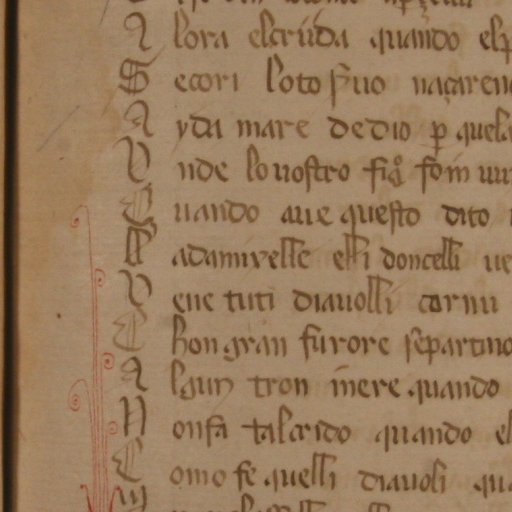 A lora elcriida quando elp
S ecori loto s̄uo naçaren
A yda mare dedio ꝑ quela
V nde lo uostro fiģ fom uu
Q uando aue questo dito
M adamixelle elli doncelli ue
V ene tuti diauolli cornu
C hon gran furore separtino
A lgun tron inere quando
N onfa talcrido quando el
C omo fe quelli diauoli qua